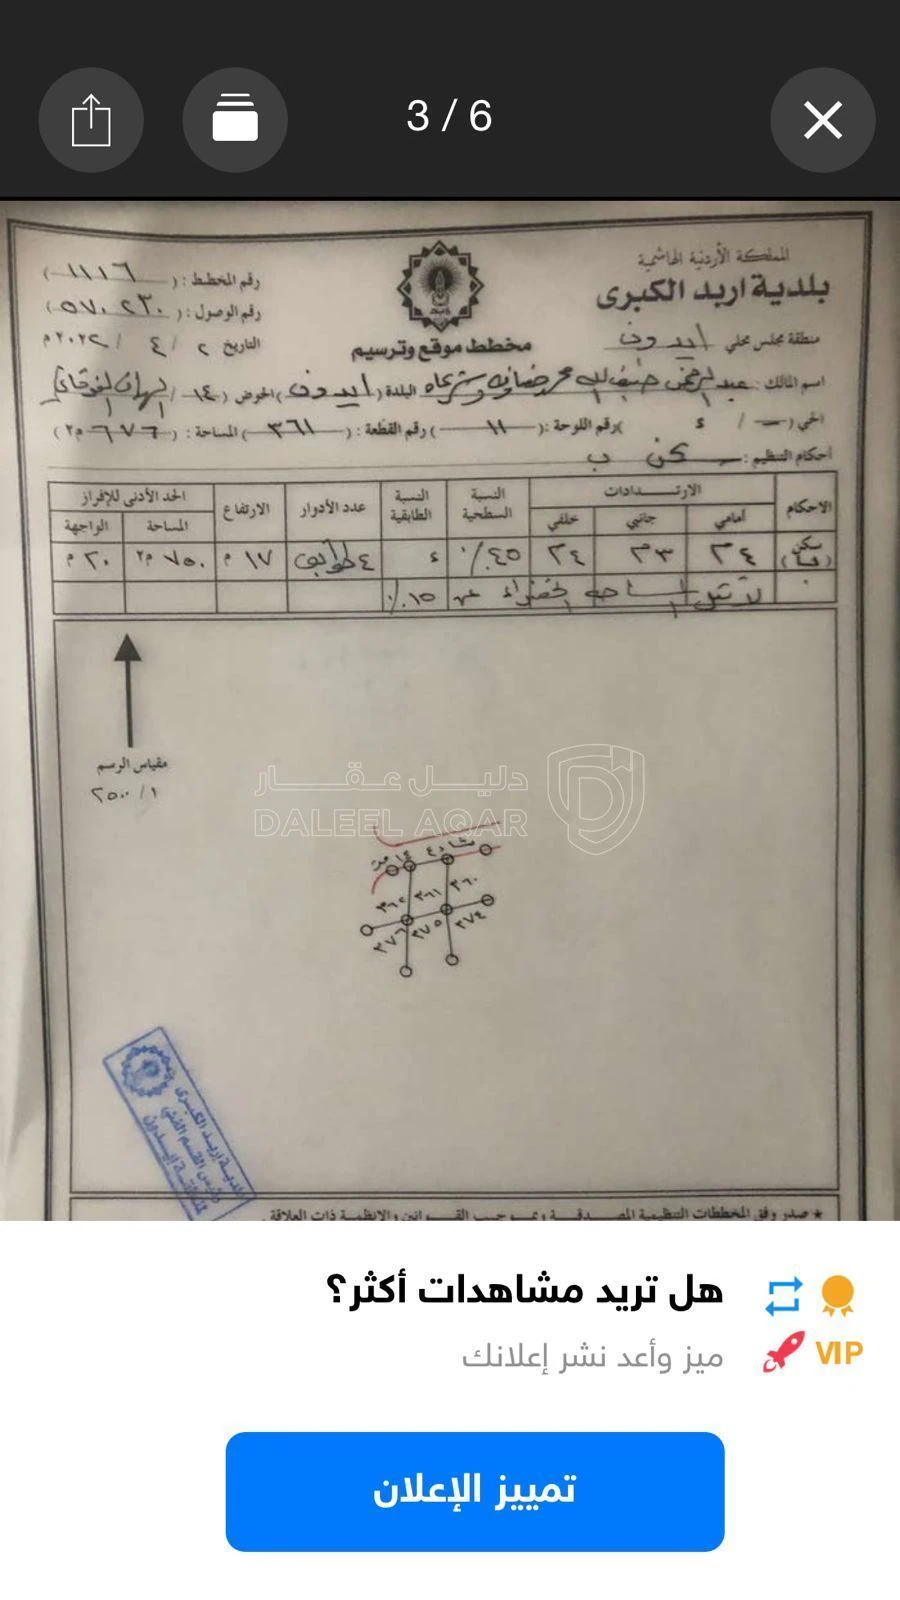 3 / 6
المملكة الأردنية الهاشمية
بلدية اربد الكبرى
منطقة مجلس محلي ايدون
رقم المخطط : (١١١٦)
رقم الوصول : (٥٧٠٢٣٠)
التاريخ ٢ / ٤ / ٢٠٢٢ م
مخطط موقع وترسيم
اسم المالك : عبدالرحمن وشركاه البلدة (ايدون) الحوض (١٤ /
الحي (— / ء) رقم اللوحة : (١١) رقم القطعة : (٣٦١) المساحة : (٦٧٦ م٢)
أحكام التنظيم : سكن ب
الاحكام الارتـــدادات النسبة السطحية النسبة الطابقية عدد الأدوار الارتفاع الحد الأدنى للإفراز
أمامي جانبي خلفي المساحة الواجهة
سكن ٣ م ٤٥٪ ء ٤ طوابق ١٧ م ٧٥٠ م٢ ٢٠ م
لا تقل المساحة الخضراء عن ١٥٪
مقياس الرسم
١ / ٢٥٠٠
دليـل عـقـار
DALEEL AQAR
شارع
٣٦٢ ٣٦١ ٣٦٠
٣٧٦ ٣٧٥ ٣٧٤
بلدية إربد الكبرى
رئيس القسم الفني
لمنطقة إيدون
★ صدر وفق المخططات التنظيمية المصدقة وبموجب القوانين والانظمة ذات العلاقة .
هل تريد مشاهدات أكثر؟
ميز وأعد نشر إعلانك
VIP
تمييز الإعلان